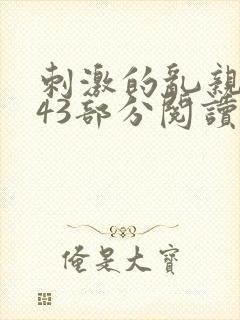 刺激的亂親
43部分閱讀
俺是大寶